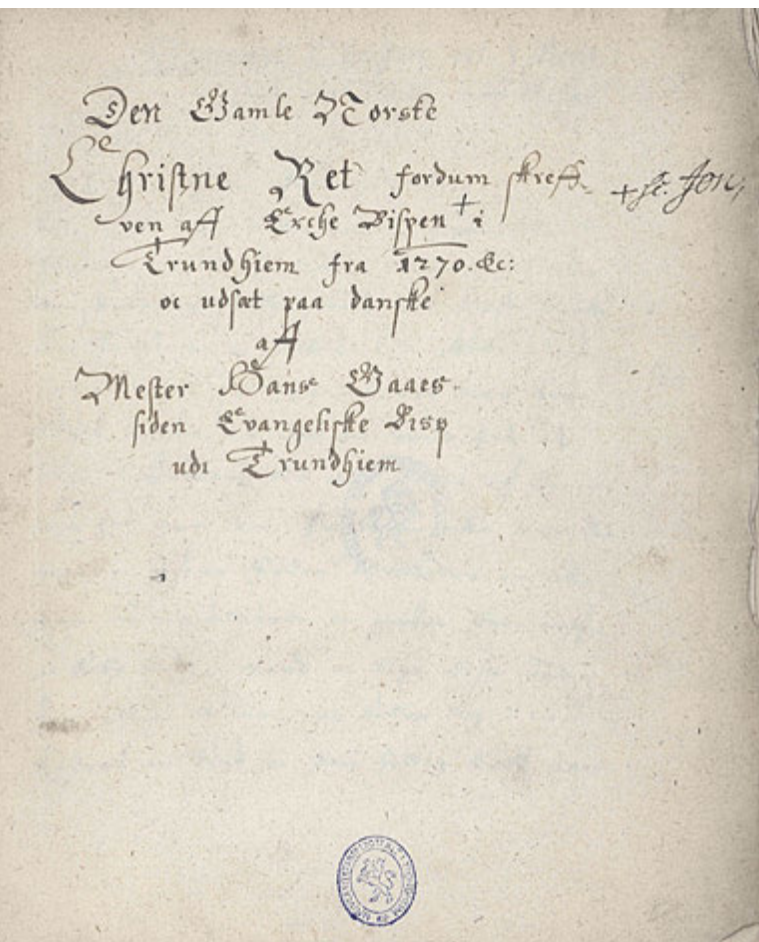 Den Gamle Norske
Christne Ret fordum skreff- + hr. Jon,
ven aff Erche Bispen + i
Trundhiem fra 1270. &c:
oc udsæt paa danske
aff
Mester Hans Gaaes.
siden Evangeliske Bisp
udi Trundhiem